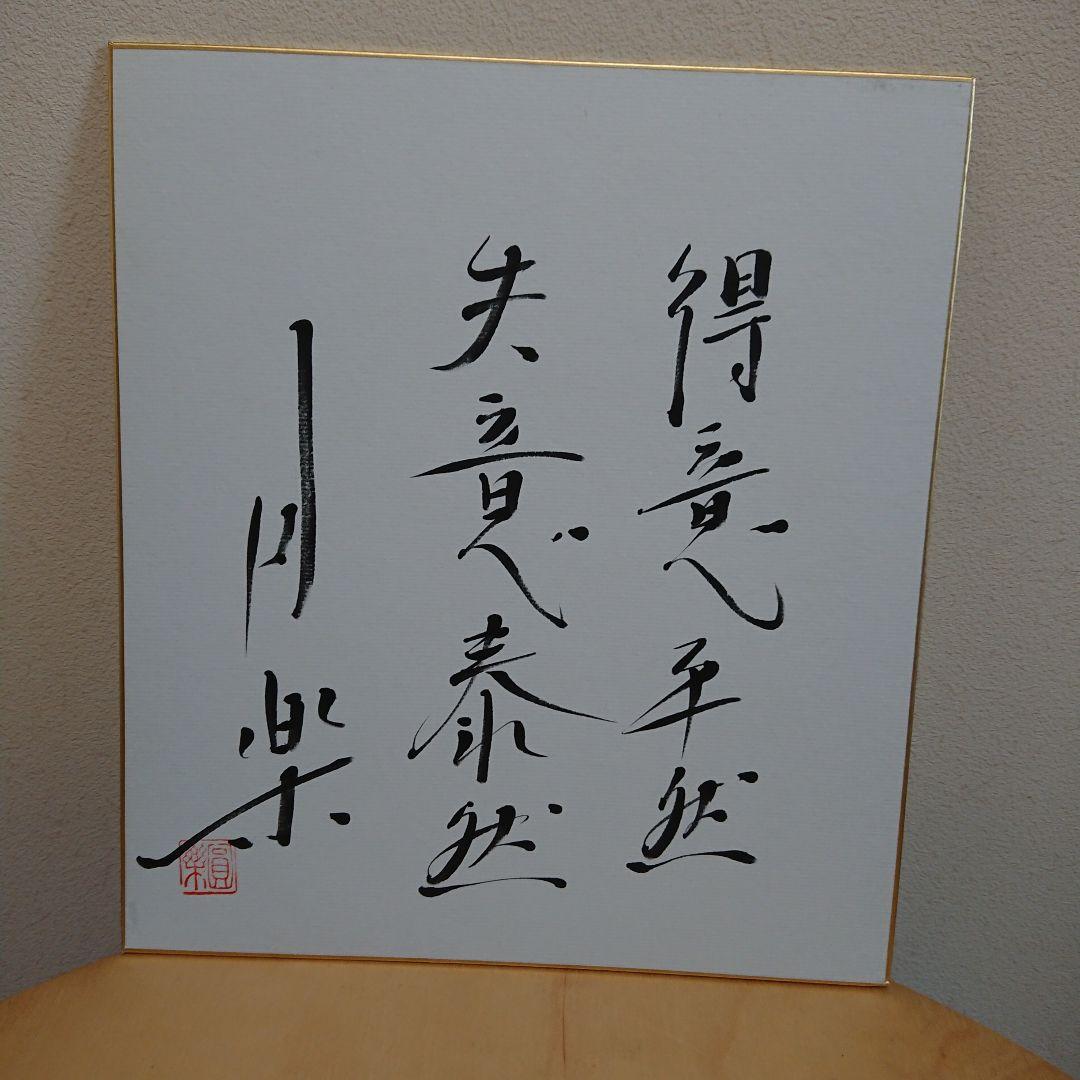 得意平然
失意泰然
円楽
圓楽